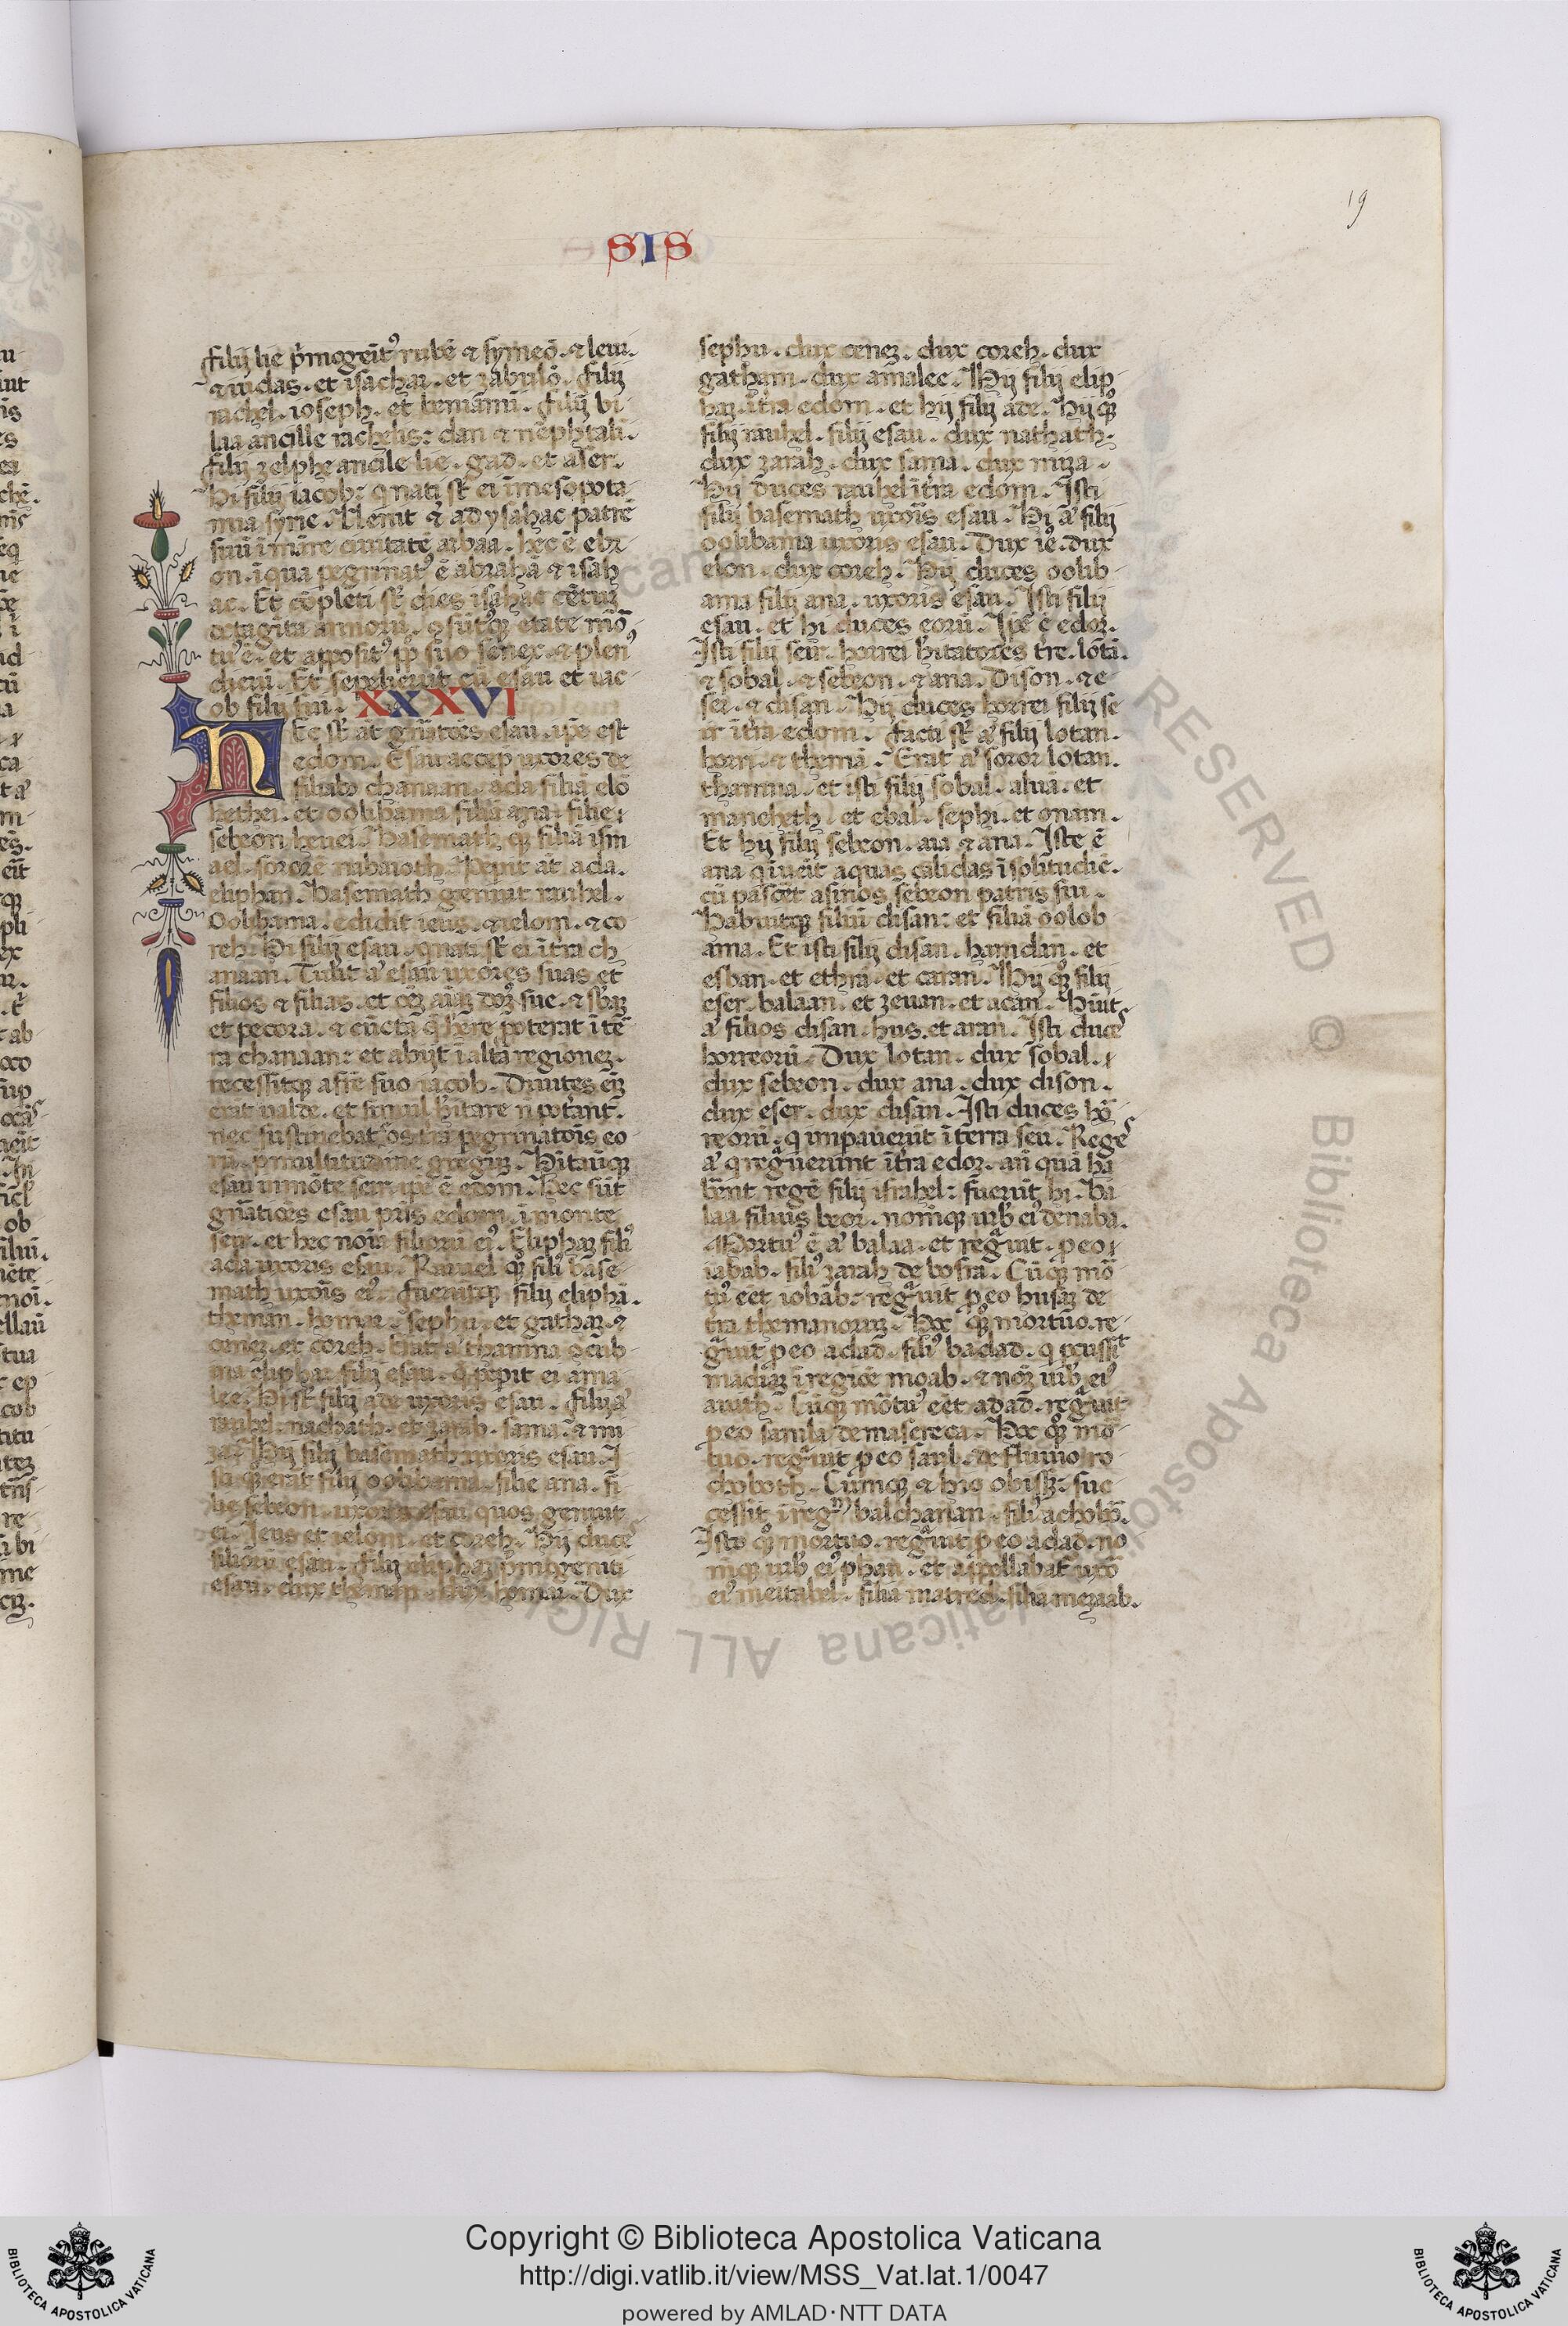 19
SIS
filij lie p̄mogeīt᾽ rubē ⁊ symeō. ⁊ leui.
⁊ iudas. et isachar. et zabulō. filij
rachel. ioseph. et beniāmī. filij bi
laa ancille rachelis: dan ⁊ nēphtali.
filij zelphe ancille lie. gad. et aser.
Hi filij iacob: q̄ nati sr̄ ei ī mesopota
mia syrie. Uenit ad ysahac patrē
suū ī māre ciuitatē arbaa. hec ē ebr
on. ī qua pegrinat᾽ ē abrahā ⁊ isah
ac. Et cōpleti sr̄ dies isahac cētuȝ
octagīta annoꝝ. etate mō
tu᾽ ē. et apposit᾽ pp̄ suo senex. ⁊ plen᾽
dieū. Et sepelierūt eū esau et iac
ob filij sui. XXXVI
HEc sr̄ āt gn̄atōes esau. ip̄e est
edom. Esau accep̄ uxores de
filiab᾽ chanaan. ada filiā elō
hethei. et oolibama filiā ana. filie
sebeon heuei. basemath q̄ȝ filiā ism
ael. sororē nabaioth. Pepit āt ada.
eliphaȝ. basemath genuit rauhel.
Oolibama. edidit ieus. ⁊ ielom. ⁊ co
reh. Hi filij esau. q̄ nati sr̄ ei ī tr̄a ch
anaan. Tulit a᾽ esau uxores suas et
filios ⁊ filias. et
et pecora. ⁊ cūcta q̄ h̄ere poterat ī tr̄
ra chanaan: et abijt ī altā regioneȝ.
recessitqȝ a fr̄e suo iacob. Diuites eīȝ
erāt ualde. et simul h̄itare n̄ pot̄ant.
nec sustinebat os tr̄a pegrinatōis eo
rū. p̄ multitudine greguȝ. Hītauitqȝ
esau in mōte seir. ip̄e ē edom. Hec sūt
gn̄atiōes esau pr̄is edom. ī monte
seir. et hec noīa filioꝝ ei᾽. Eliphaȝ fili᾽
ada uxoris esau. Rauuel q̄ȝ fili᾽ base
math uxōis ei᾽. fuerūtqȝ filij eliphā.
theman. homar. sephu. et gathaȝ. ⁊
ceneȝ. et coreh. Erat a᾽ thamna 
na eliphaȝ filij esau. q̄ pepit ei ama
lec. Hi sr̄ filij ade uxoris esau. filij a᾽
rauhel. nachath. et zarah. sama. ⁊ mi
za. Hij filij basemath uxoris esau. I
sti quoqȝ erāt filij oolibama. filie ana. fi
lie sebeon. uxoris esau quos genuit
ei. Ieus et ielom. et coreh. Hij duce
filioꝝ esau. filij eliphaȝ p̄mogeniti
esau. dux theman. dux homar. Dux
sephu. dux ceneȝ. dux coreh. dux
gatham. dux amalec. Hij filij elip
haȝ. ī tr̄a edom. et hij filij ade. Hij q̄ȝ
filij rauhel. filij esau. dux nathath.
dux zarah. dux sama. dux miza.
Hij duces rauhel ī tr̄a edom. Isti
filij basemath uxōis esau. Hi a᾽ filij
oolibama uxoris esau. Dux ie᾽. dux
elon. dux coreh. Hij duces oolib
ama filij ana. uxoris esau. Isti filij
esau. et hi duces eorū. Ip̄e ē edoȝ.
Isti filij seir. horrei h̄itatores tr̄e. lotā.
⁊ sobal. ⁊ sebeon. ⁊ ana. Dison. ⁊ e
ser. ⁊ disan. Hij duces horrei filij se
ir ī tr̄a edom. facti sr̄ a᾽ filij lotan.
horri. ⁊ themā. Erat a᾽ soror lotan.
thamna. et isti filij sobal. aluā. et
maneheth. et ebal. sephi. et onam.
Et hij filij sebeon. aia ⁊ ana. Iste ē
ana q̄ īueīt aquas calidas ī solitudīe.
cū pascēt asinos sebeon patris sui.
Habuitqȝ filiū disan: et filiā oolob
ama. Et isti filij disan. hamdan. et
esban. et ethrā. et caran. Hij q̄ȝ filij
eser. balaan. et zeuan. et acan. Hūit
a᾽ filios disan. hus. et aran. Isti duce
horreorū. Dux lotan. dux sobal.
dux sebeon. dux ana. dux dison.
dux eser. dux disan. Isti duces hō
reorū. q̄ impauerūt ī terra seir. Rege
a᾽ q̄ regnuerunt ī tr̄a edoȝ. an̄ quā ha
bēnt regē filij israhel: fuerūt hi. Ba
laa filius beor. nomēqȝ urb᾽ ei᾽ denaba.
Mortu᾽ ē a᾽ balaa. et regnuit p̄ eo
iobab. fili᾽ zarah de bosra. Cūqȝ mō
tu᾽ eēt iobab: regnuit p̄ eo husaȝ de
tr̄a themanoruȝ. Hoc q̄ȝ mortuo. re
gnuit p̄ eo adad. fili᾽ badad. q̄ pcussit
madiaȝ ī regiōe moab. ⁊ nōȝ urb᾽ ei᾽
auith. Cūqȝ mōtu᾽ eēt adad. regnuit
p̄ eo samla de masereca. Hoc q̄ȝ mō
tuo. regnuit p̄ eo saul. de fluuio ro
choboth. Cūmqȝ ⁊ hic obisset. suc
cessit ī regnū balchanan. fili᾽ achobō.
Isto q̄ȝ mortuo. regnuit p̄ eo adad. no
mēqȝ urb᾽ ei᾽ phau. et appellabat uxō
ei᾽ meitabel. filia matred. filia mezaab.
Copyright © Biblioteca Apostolica Vaticana
http://digi.vatlib.it/view/MSS_Vat.lat.1/0047
powered by AMLAD·NTT DATA
BIBLIOTECA APOSTOLICA VATICANA
BIBLIOTECA APOSTOLICA VATICANA